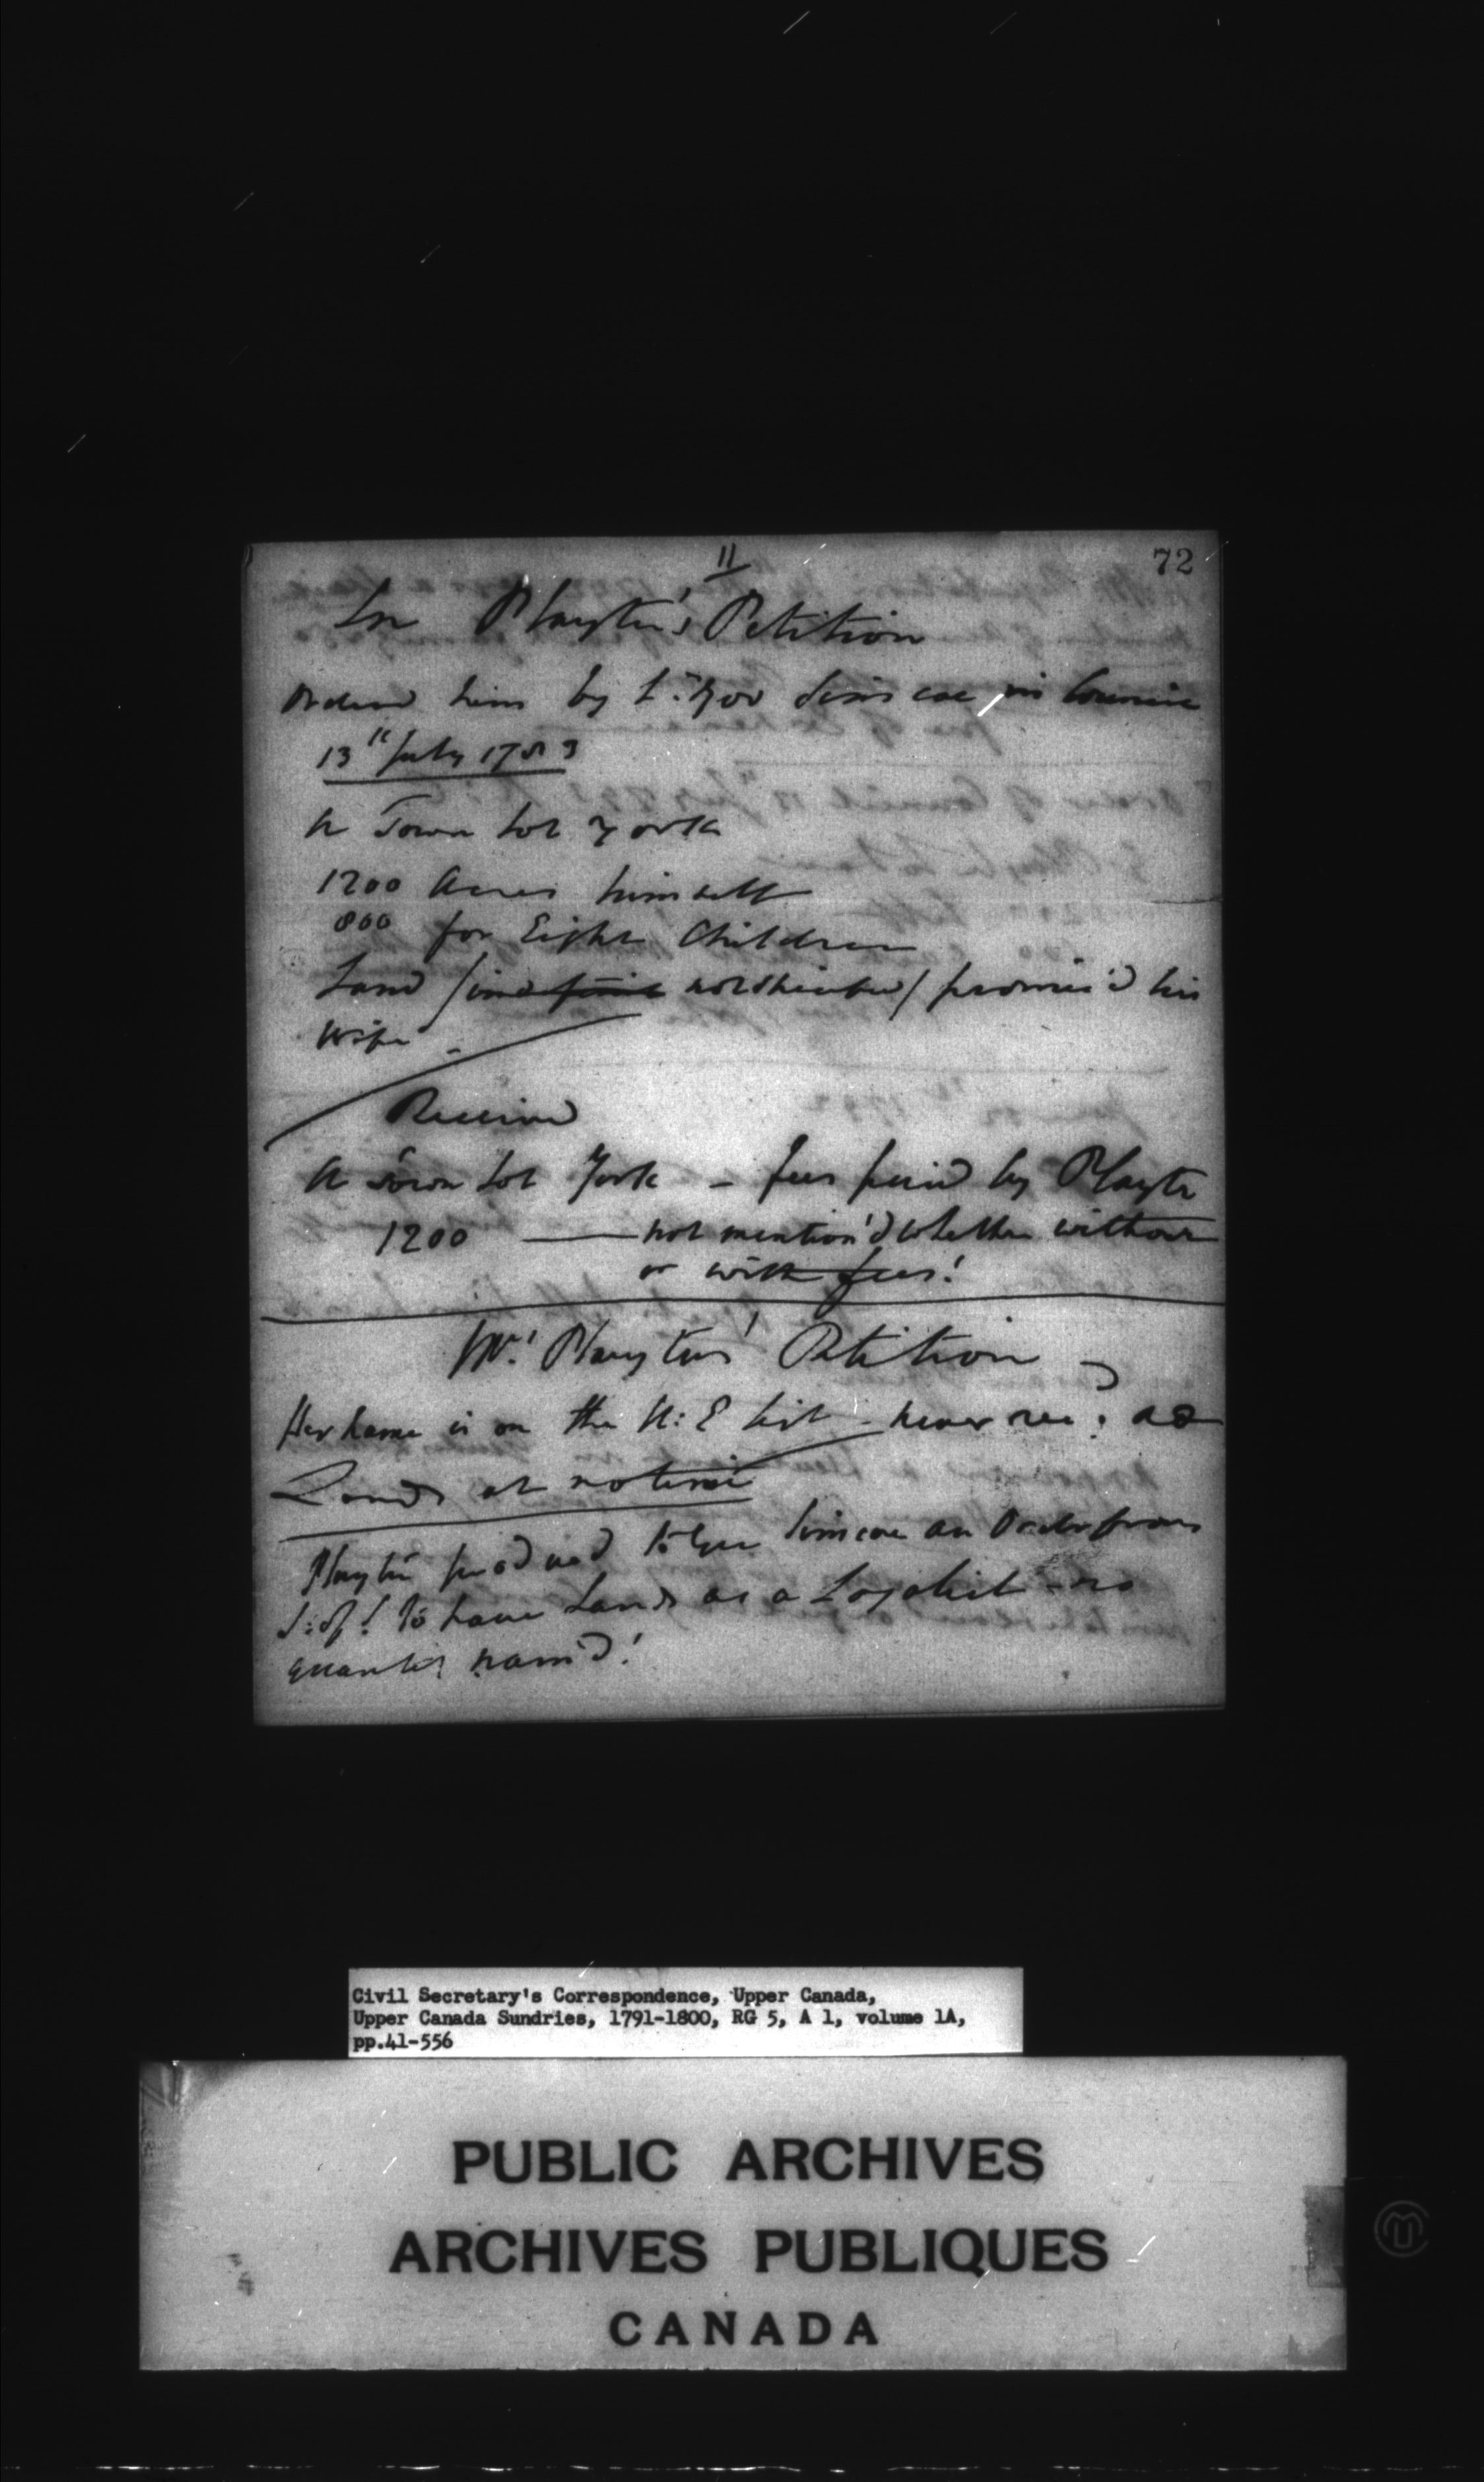 11
72
In Playter's Petition
Ordered him by Lt Gov Simcoe in Council
13th July 1793
A Town Lot York
1200 Acres himself
800 for Eight Children
Land / promis'd his
Wife -
Received
A Town Lot York - fees paid by Playter
1200 — not mention'd whether without
or with fees!
Mrs Playters' Petition
Her name is on the U: E list - never rec:d
Lands at
Playter produced to Gov Simcoe an Order from
to have Lands as a Loyalist - no
quantity nam'd!
Civil Secretary's Correspondence, Upper Canada,
Upper Canada Sundries, 1791-1800, RG 5, A 1, volume 1A,
pp.41-556
PUBLIC ARCHIVES
ARCHIVES PUBLIQUES
CANADA